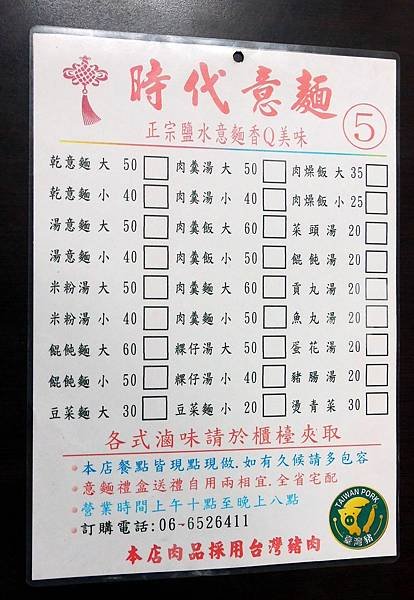 時代意麵
正宗鹽水意麵香Q美味
5
乾意麵 大 50 肉羹湯 大 50 肉燥飯 大 35
乾意麵 小 40 肉羹湯 小 40 肉燥飯 小 25
湯意麵 大 50 肉羹飯 大 60 菜頭湯 20
湯意麵 小 40 肉羹飯 小 50 餛飩湯 20
米粉湯 大 50 肉羹麵 大 60 貢丸湯 20
米粉湯 小 40 肉羹麵 小 50 魚丸湯 20
餛飩麵 大 60 粿仔湯 大 50 蛋花湯 20
餛飩麵 小 50 粿仔湯 小 40 豬腸湯 20
豆菜麵 大 30 豆菜麵 小 20 燙青菜 30
各式滷味請於櫃檯夾取
本店餐點皆現點現做.如有久候請多包容
意麵禮盒送禮自用兩相宜.全省宅配
營業時間上午十點至晚上八點
訂購電話:06-6526411
本店肉品採用台灣豬肉
TAIWAN PORK
臺灣豬